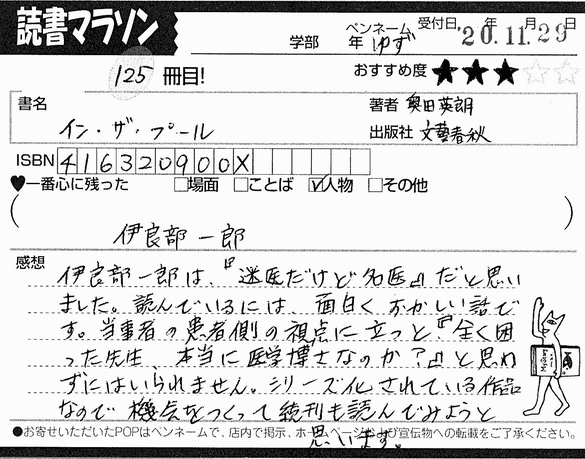 読書マラソン
学部 年 ペンネーム ゆず 受付日 '20.年11.月29日
125 冊目! おすすめ度 ★★★☆☆
書名 著者 奥田英朗
イン・ザ・プール 出版社 文藝春秋
ISBN 416320900X
♥一番心に残った □場面 □ことば ☑人物 □その他
( 伊良部 一郎 )
感想
伊良部一郎は、『迷医だけど名医』だと思い
ました。読んでいるには、面白くおかしい話で
す。当事者の患者側の視点に立つと、『全く困
った先生、本当に医学博士なのか?』と思わ
ずにはいられません。シリーズ化されている作品
なので機会をつくって続刊も読んでみようと
思います。
●お寄せいただいたPOPはペンネームで、店内で掲示、ホームページおよび宣伝物への転載をご了承ください。